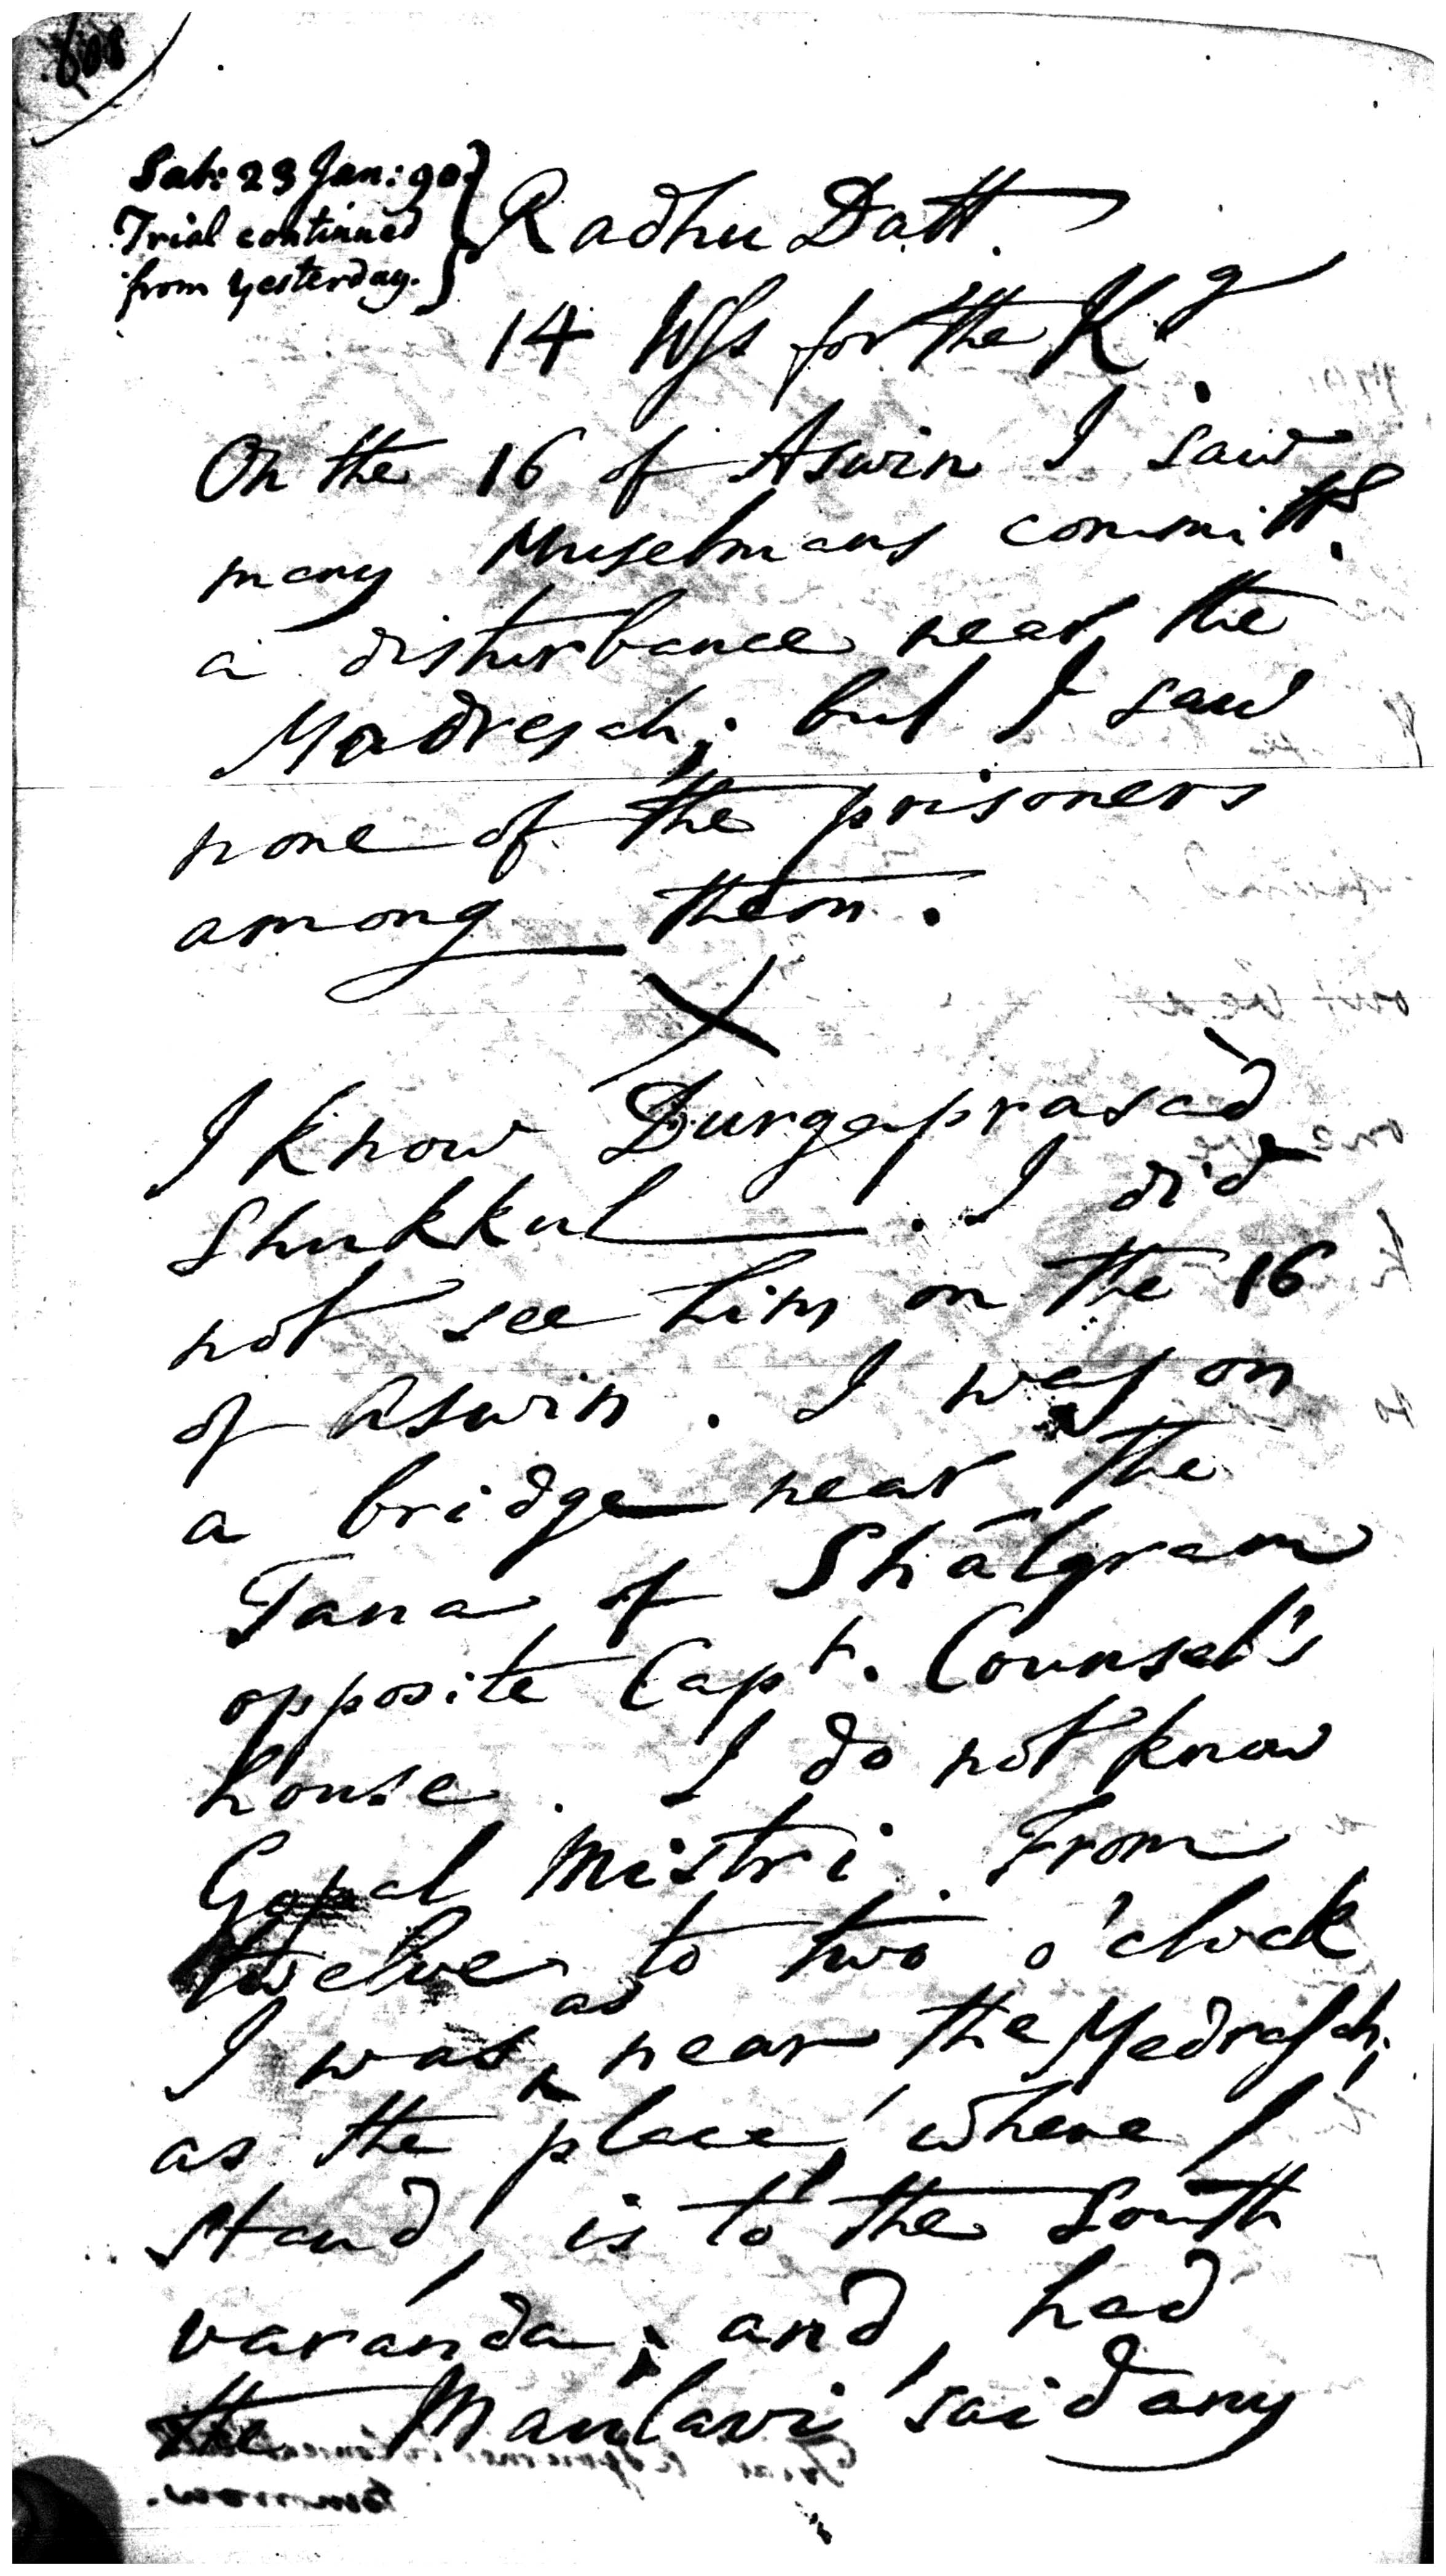 608
Sat: 23 Jan: 90.
Trial continued
from yesterday.
Radhu Datt.
14 Wss for the K.g
On the 16 of Aswin I saw
many Muselmans committg.
a disturbance near the
Madresah; but I saw
none of the prisoners
among them.
X
I know Durgaprasàd
Shukkul. I did
not see him on the 16
of Aswin. I was on
a bridge near the
Tana of Shâlgram
opposite Capt. Counsel's
house. I do not know
Gopal Mistri. From
twelve to two o'clock
I was as near the Medrassah;
as the place, where I
stand, is to the South
varanda; and, had
the Maulavi said any